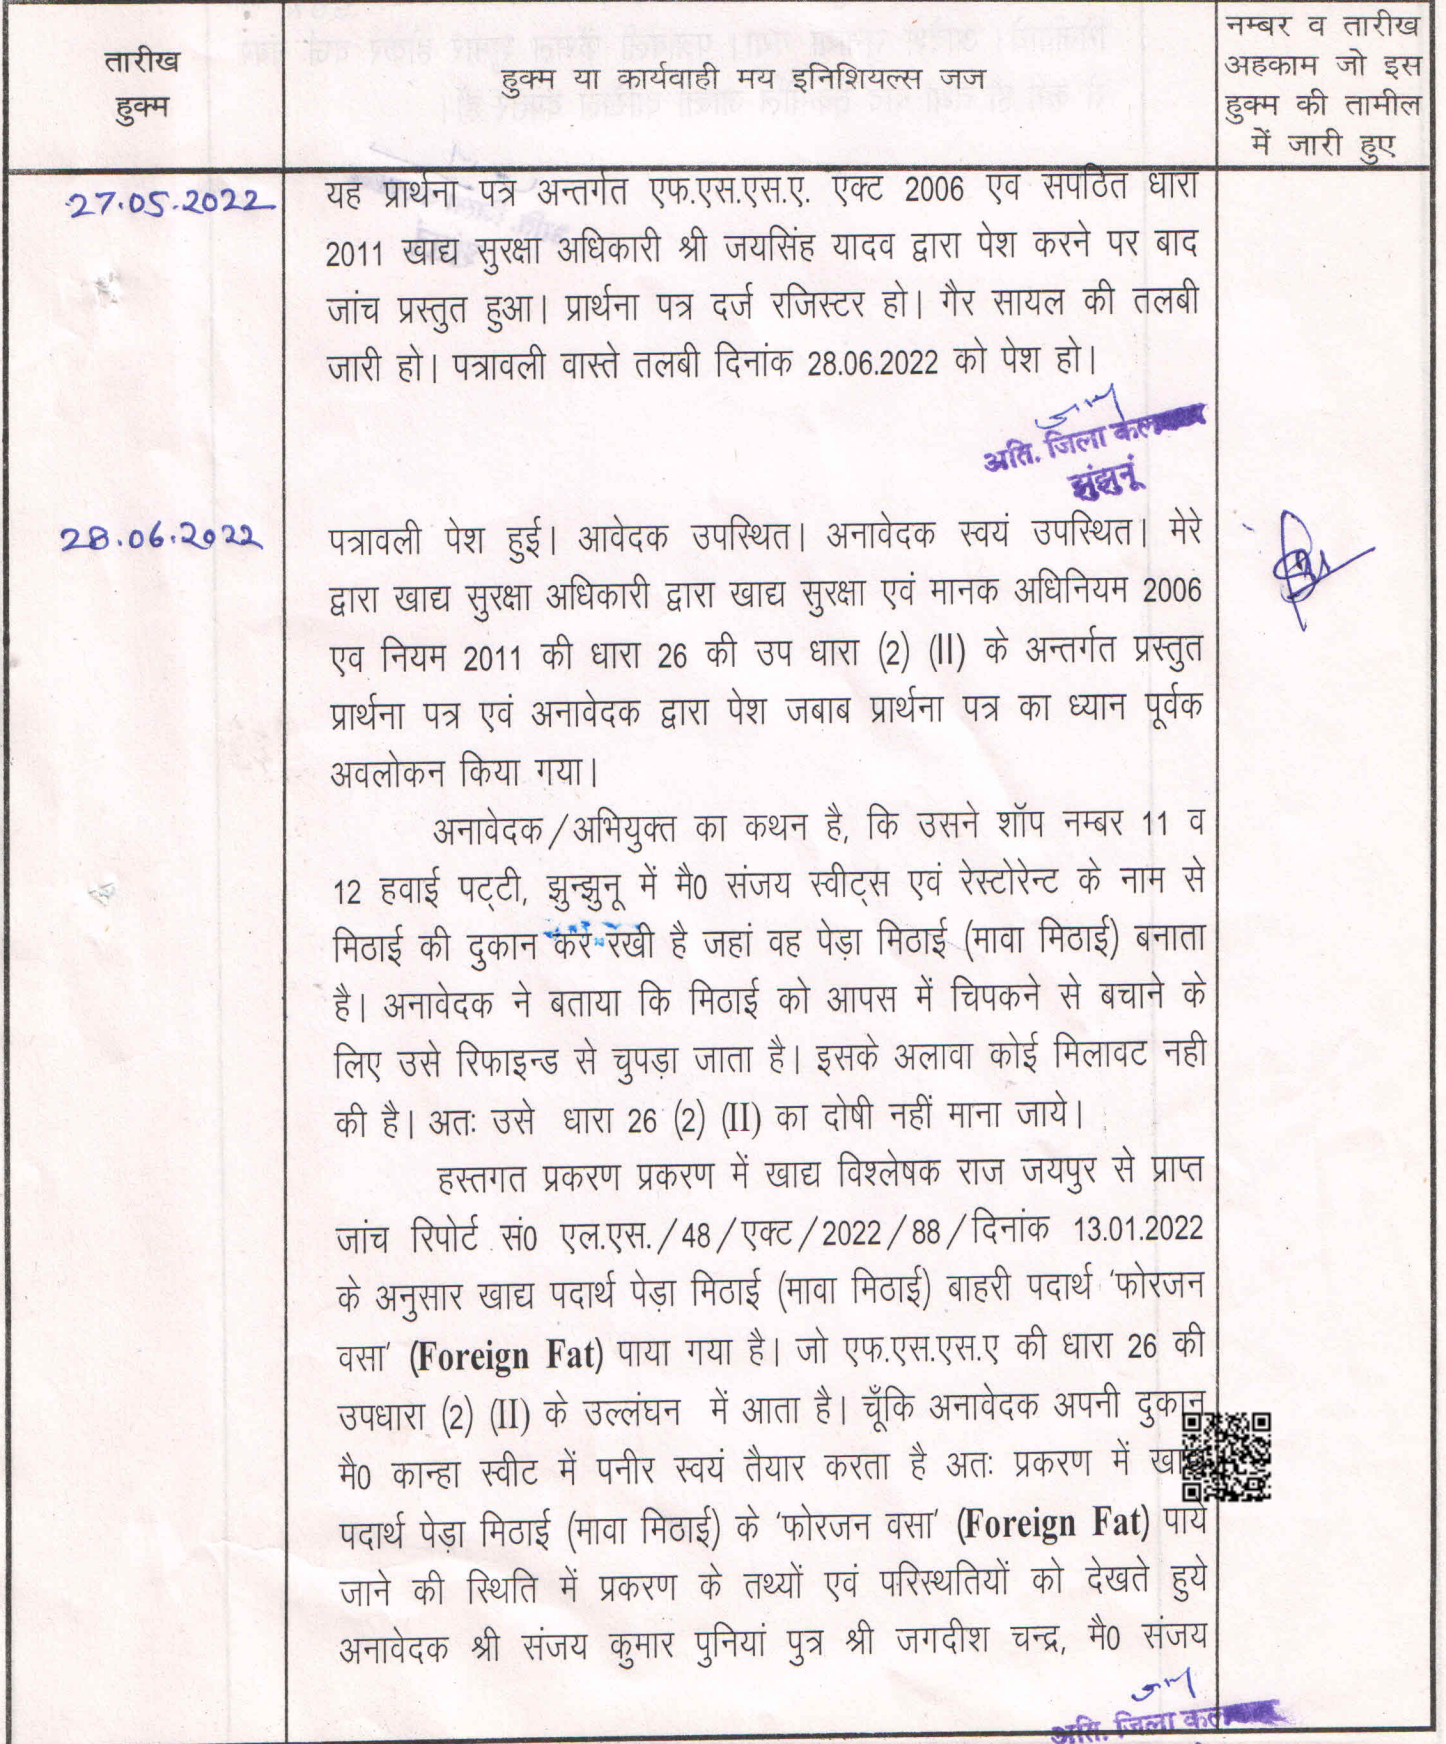 तारीख
हुक्म
हुक्म या कार्यवाही मय इनिशियल्स जज
नम्बर व तारीख
अहकाम जो इस
हुक्म की तामील
में जारी हुए
27.05.2022
यह प्रार्थना पत्र अन्तर्गत एफ.एस.एस.ए. एक्ट 2006 एव सपठित धारा
2011 खाद्य सुरक्षा अधिकारी श्री जयसिंह यादव द्वारा पेश करने पर बाद
जांच प्रस्तुत हुआ। प्रार्थना पत्र दर्ज रजिस्टर हो। गैर सायल की तलबी
जारी हो। पत्रावली वास्ते तलबी दिनांक 28.06.2022 को पेश हो।
अति. जिला कलक्टर
झुंझुनूं
28.06.2022
पत्रावली पेश हुई। आवेदक उपस्थित। अनावेदक स्वयं उपस्थित। मेरे
द्वारा खाद्य सुरक्षा अधिकारी द्वारा खाद्य सुरक्षा एवं मानक अधिनियम 2006
एव नियम 2011 की धारा 26 की उप धारा (2) (II) के अन्तर्गत प्रस्तुत
प्रार्थना पत्र एवं अनावेदक द्वारा पेश जबाब प्रार्थना पत्र का ध्यान पूर्वक
अवलोकन किया गया।
अनावेदक/अभियुक्त का कथन है, कि उसने शॉप नम्बर 11 व
12 हवाई पट्टी, झुन्झुनू में मै0 संजय स्वीट्स एवं रेस्टोरेन्ट के नाम से
मिठाई की दुकान कर रखी है जहां वह पेड़ा मिठाई (मावा मिठाई) बनाता
है। अनावेदक ने बताया कि मिठाई को आपस में चिपकने से बचाने के
लिए उसे रिफाइन्ड से चुपड़ा जाता है। इसके अलावा कोई मिलावट नही
की है। अतः उसे धारा 26 (2) (II) का दोषी नहीं माना जाये।
हस्तगत प्रकरण प्रकरण में खाद्य विश्लेषक राज जयपुर से प्राप्त
जांच रिपोर्ट सं0 एल.एस./48/एक्ट/2022/88/दिनांक 13.01.2022
के अनुसार खाद्य पदार्थ पेड़ा मिठाई (मावा मिठाई) बाहरी पदार्थ 'फोरजन
वसा' (Foreign Fat) पाया गया है। जो एफ.एस.एस.ए की धारा 26 की
उपधारा (2) (II) के उल्लंघन में आता है। चूँकि अनावेदक अपनी दुकान
मै0 कान्हा स्वीट में पनीर स्वयं तैयार करता है अतः प्रकरण में खाद्य
पदार्थ पेड़ा मिठाई (मावा मिठाई) के 'फोरजन वसा' (Foreign Fat) पाये
जाने की स्थिति में प्रकरण के तथ्यों एवं परिस्थतियों को देखते हुये
अनावेदक श्री संजय कुमार पुनियां पुत्र श्री जगदीश चन्द्र, मै0 संजय
अति. जिला कलक्टर